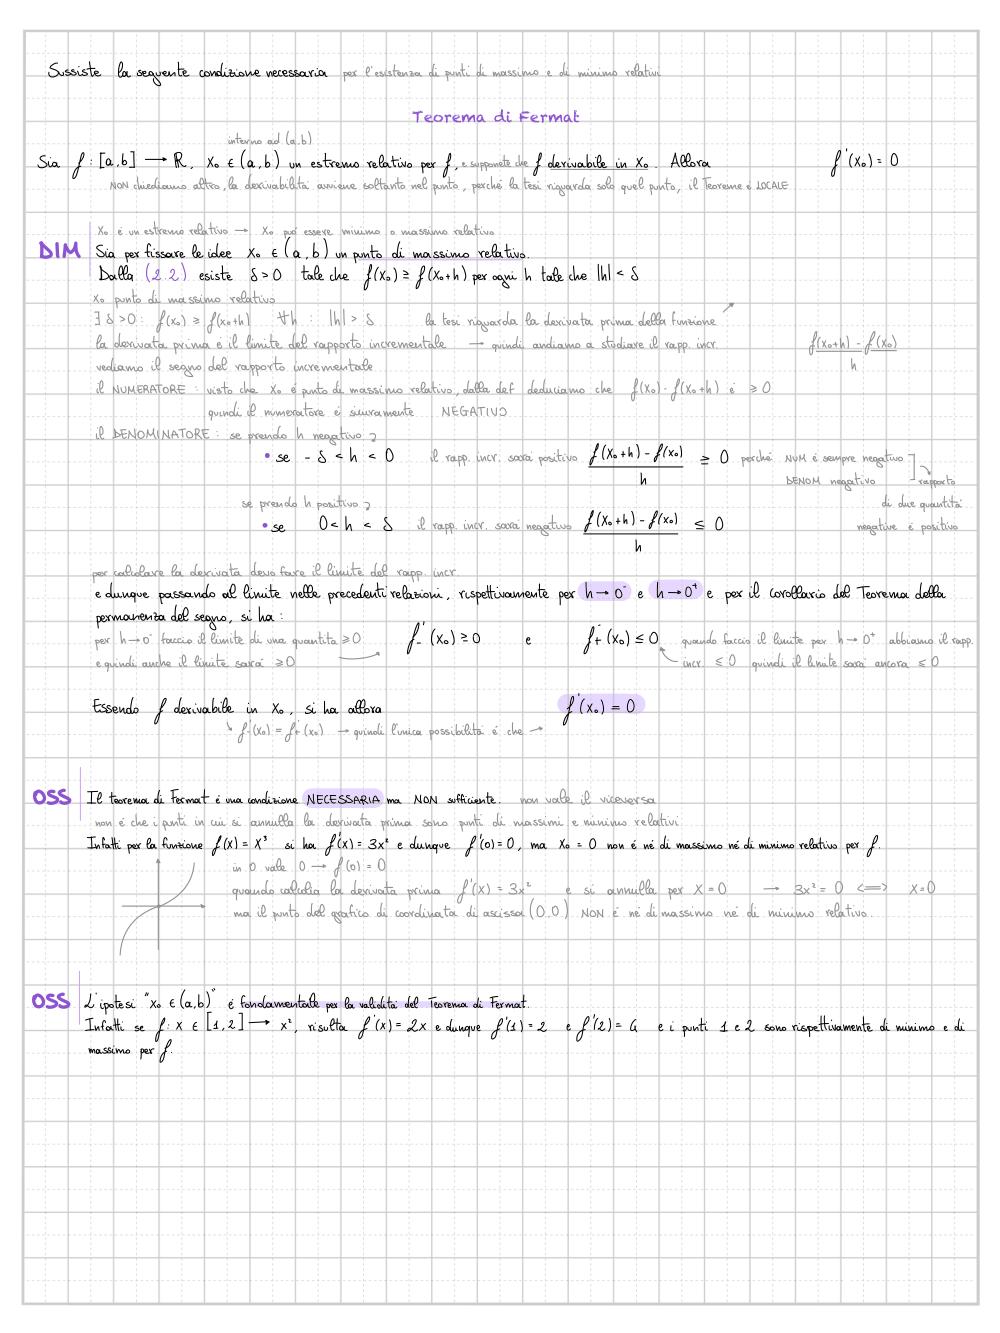 Sussiste la seguente condizione necessaria per l'esistenza di punti di massimo e di minimo relativi
Teorema di Fermat
interno ad (a,b)
Sia f: [a,b] → R, x₀ ∈ (a,b) un estremo relativo per f, e supponete che f derivabile in x₀. Allora f'(x₀) = 0
NON chiediamo altro, la derivabilità avviene soltanto nel punto, perché la tesi riguarda solo quel punto, il Teorema è LOCALE
x₀ è un estremo relativo → x₀ può essere minimo o massimo relativo
DIM Sia per fissare le idee x₀ ∈ (a,b) un punto di massimo relativo.
Dalla (2.2) esiste δ>0 tale che f(x₀) ≥ f(x₀+h) per ogni h tale che |h| < δ
x₀ punto di massimo relativo
∃ δ>0: f(x₀) ≥ f(x₀+h) ∀h : |h| > δ la tesi riguarda la derivata prima della funzione
la derivata prima è il limite del rapporto incrementale → quindi andiamo a studiare il rapp. incr. f(x₀+h) - f(x₀)
h
vediamo il segno del rapporto incrementale
il NUMERATORE: visto che x₀ è punto di massimo relativo, dalla def deduciamo che f(x₀) - f(x₀+h) è ≥ 0
quindi il numeratore è sicuramente NEGATIVO
il DENOMINATORE: se prendo h negativo
• se - δ < h < 0 il rapp. incr. sarà positivo f(x₀+h) - f(x₀) ≥ 0 perché NUM è sempre negativo
h DENOM negativo rapporto
se prendo h positivo di due quantità
• se 0 < h < δ il rapp. incr. sarà negativo f(x₀+h) - f(x₀) ≤ 0 negative è positivo
h
per calcolare la derivata devo fare il limite del rapp. incr.
e dunque passando al limite nelle precedenti relazioni, rispettivamente per h→0⁻ e h→0⁺ e per il corollario del Teorema della
permanenza del segno, si ha:
per h→0⁻ faccio il limite di una quantità ≥0 f'₋(x₀) ≥ 0 e f'₊(x₀) ≤ 0 quando faccio il limite per h→0⁺ abbiamo il rapp.
e quindi anche il limite sarà ≥0 incr. ≤ 0 quindi il limite sarà ancora ≤ 0
Essendo f derivabile in x₀, si ha allora f'(x₀) = 0
f'₋(x₀) = f'₊(x₀) → quindi l'unica possibilità è che →
OSS Il teorema di Fermat è una condizione NECESSARIA ma NON sufficiente. non vale il viceversa
non è che i punti in cui si annulla la derivata prima sono punti di massimi e minimo relativi
Infatti per la funzione f(x) = x³ si ha f'(x) = 3x² e dunque f'(0)=0, ma x₀ = 0 non è né di massimo né di minimo relativo per f.
in 0 vale 0 → f(0) = 0
quando calcolia la derivata prima f'(x) = 3x² e si annulla per x = 0 → 3x² = 0 <=> x=0
ma il punto del grafico di coordinata di ascissa (0,0) NON è né di massimo né di minimo relativo.
OSS L'ipotesi "x₀ ∈ (a,b)" è fondamentale per la validità del Teorema di Fermat.
Infatti se f: x ∈ [1,2] → x², risulta f'(x) = 2x e dunque f'(1) = 2 e f'(2) = 4 e i punti 1 e 2 sono rispettivamente di minimo e di
massimo per f.